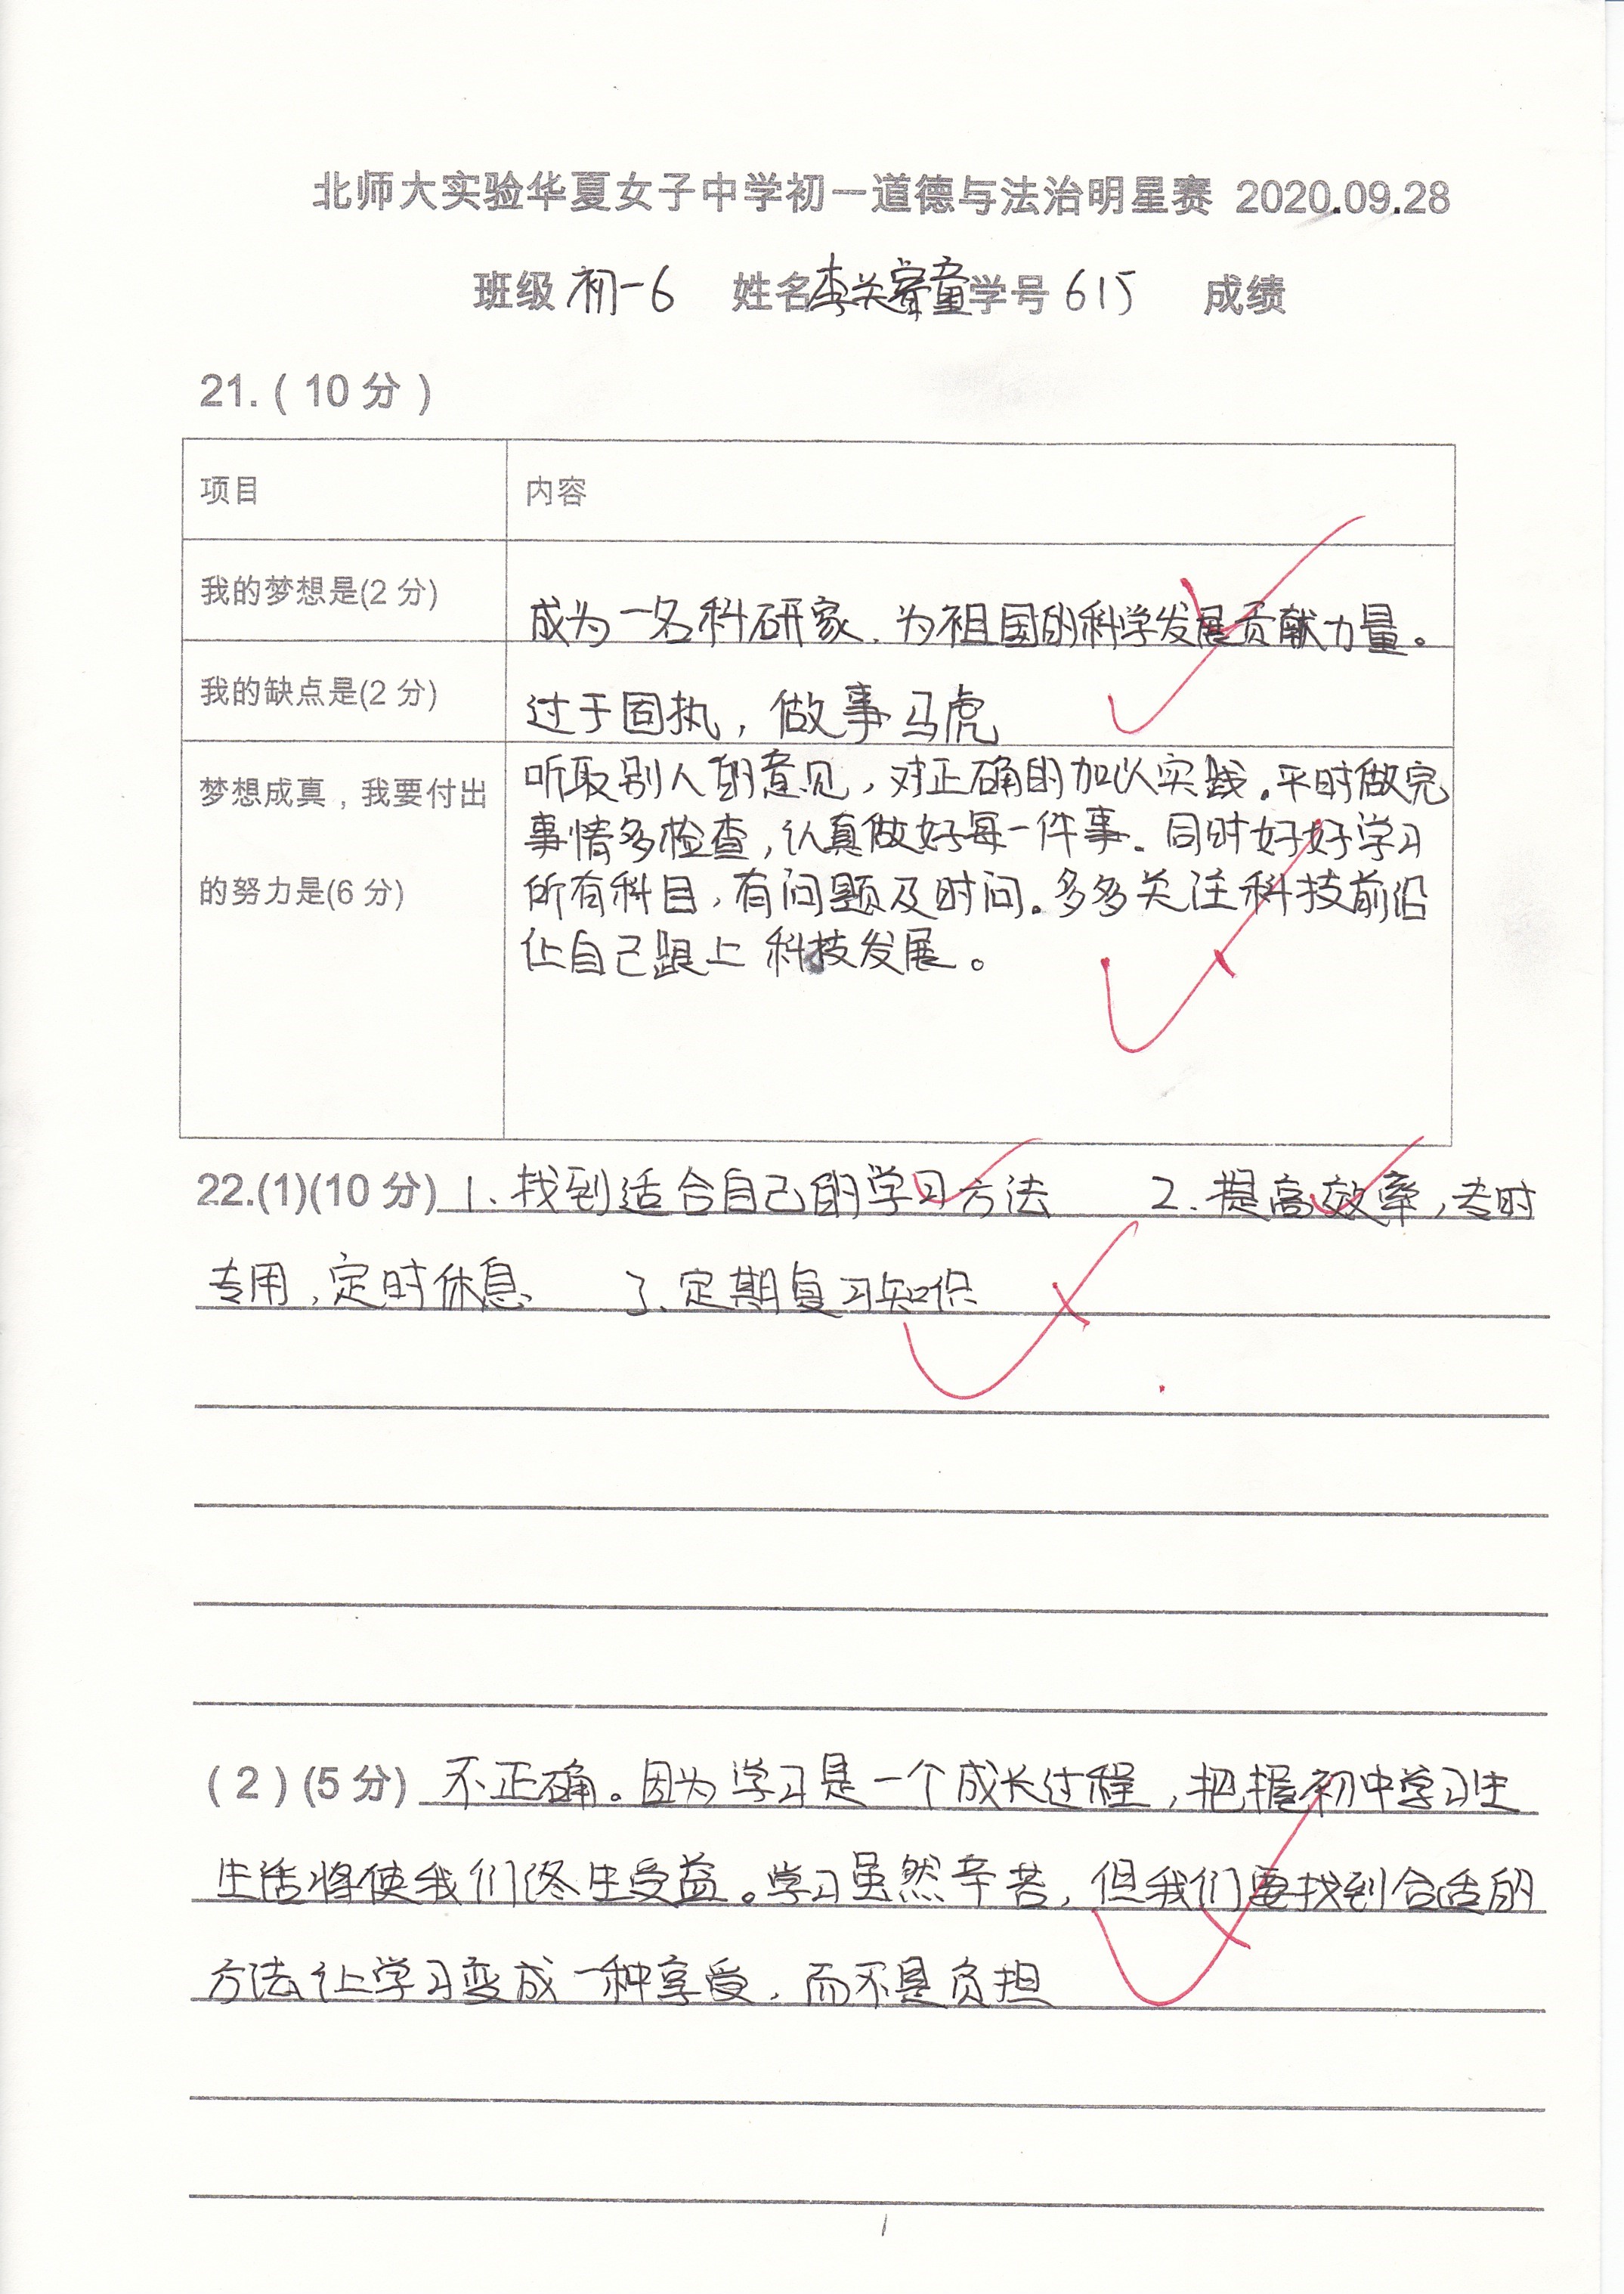 北师大实验华夏女子中学初一道德与法治明星赛 2020.09.28
班级 初一6 姓名 李关睿童 学号 615 成绩
21.（10 分）
项目 内容
我的梦想是(2 分) 成为一名科研家，为祖国的科学发展贡献力量。
我的缺点是(2 分) 过于固执，做事马虎
梦想成真，我要付出
的努力是(6 分)
听取别人的意见，对正确的加以实践。平时做完
事情多检查，认真做好每一件事。同时好好学习
所有科目，有问题及时问。多多关注科技前沿
让自己跟上科技发展。
22.(1)(10 分) 1、找到适合自己的学习方法 2、提高效率，专时
专用，定时休息、 3、定期复习知识
（2）(5 分) 不正确。因为学习是一个成长过程，把握初中学习生
生活将使我们终生受益。学习虽然辛苦，但我们要找到合适的
方法让学习变成一种享受，而不是负担
1